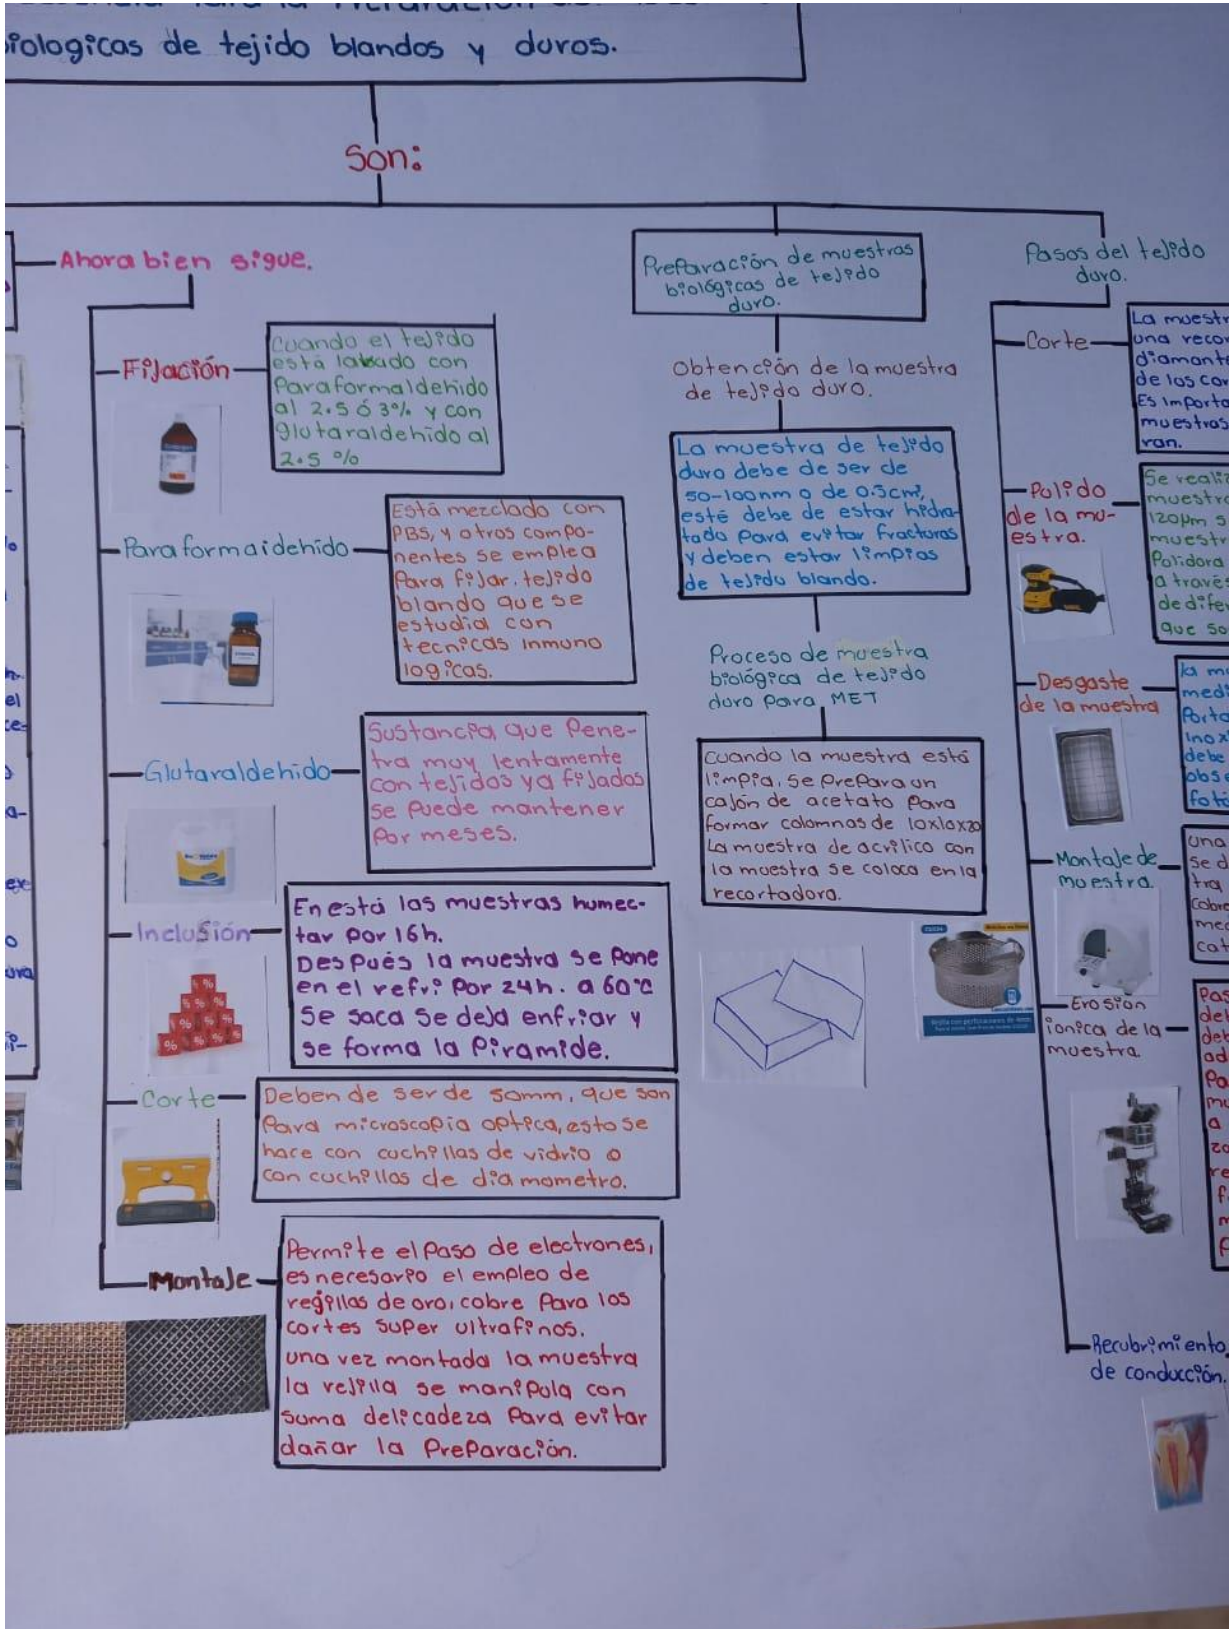 biologicas de tejido blandos y duros.
Son:
Ahora bien sigue.
Fijación
Cuando el tejido
está labado con
Paraformaldehido
al 2.5 ó 3% y con
glutaraldehido al
2.5 %
Paraformaidehido
Está mezclado con
PBS, y otros compo-
nentes se emplea
Para fijar. tejido
blando que se
estudial con
tecnicas inmuno
logicas.
Glutaraldehido
Sustancia que Pene-
tra muy lentamente
con tejidos ya fijados
se puede mantener
Por meses.
Inclusión
En está las muestras humec-
tar por 16h.
Después la muestra se Pone
en el refri por 24h. a 60°C
Se saca se deja enfriar y
se forma la Piramide.
Corte
Deben de ser de 50mm, que son
Para microscopia optica, esto se
hace con cuchillas de vidrio o
con cuchillos de diamometro.
Montaje
Permite el Paso de electrones,
es necesario el empleo de
regillas de oro, cobre Para los
cortes super ultrafinos.
una vez montada la muestra
la rejilla se manipula con
suma delicadeza Para evitar
dañar la Preparación.
Preparación de muestras
biológicas de tejido
duro.
Obtención de la muestra
de tejido duro.
La muestra de tejido
duro debe de ser de
50-100nm o de 0.5cm³,
esté debe de estar hidra-
tado Para evitar fracturas
y deben estar limpios
de tejido blando.
Proceso de muestra
biológica de tejido
duro Para MET
Cuando la muestra está
limpia, se Prepara un
cajón de acetato Para
formar columnas de 10x10x20
La muestra de acrilico con
la muestra se coloca en la
recortadora.
Pasos del tejido
duro.
Corte
La muestr
una recor
diamante
de los cor
Es importa
muestras
ran.
Pulido
de la mu-
estra.
Se realiz
muestra
120µm s
muestr
Pulidora
a través
de difer
que so
Desgaste
de la muestra
la mu
medi
Porta
inox
debe
obse
fotó
Montaje de
muestra.
una
se d
tra
cobre
med
cat
Erosion
ionica de la
muestra.
Pas
deb
deb
ad
Pa
mu
a
20
re
f
m
f
Recubrimiento
de conducción.